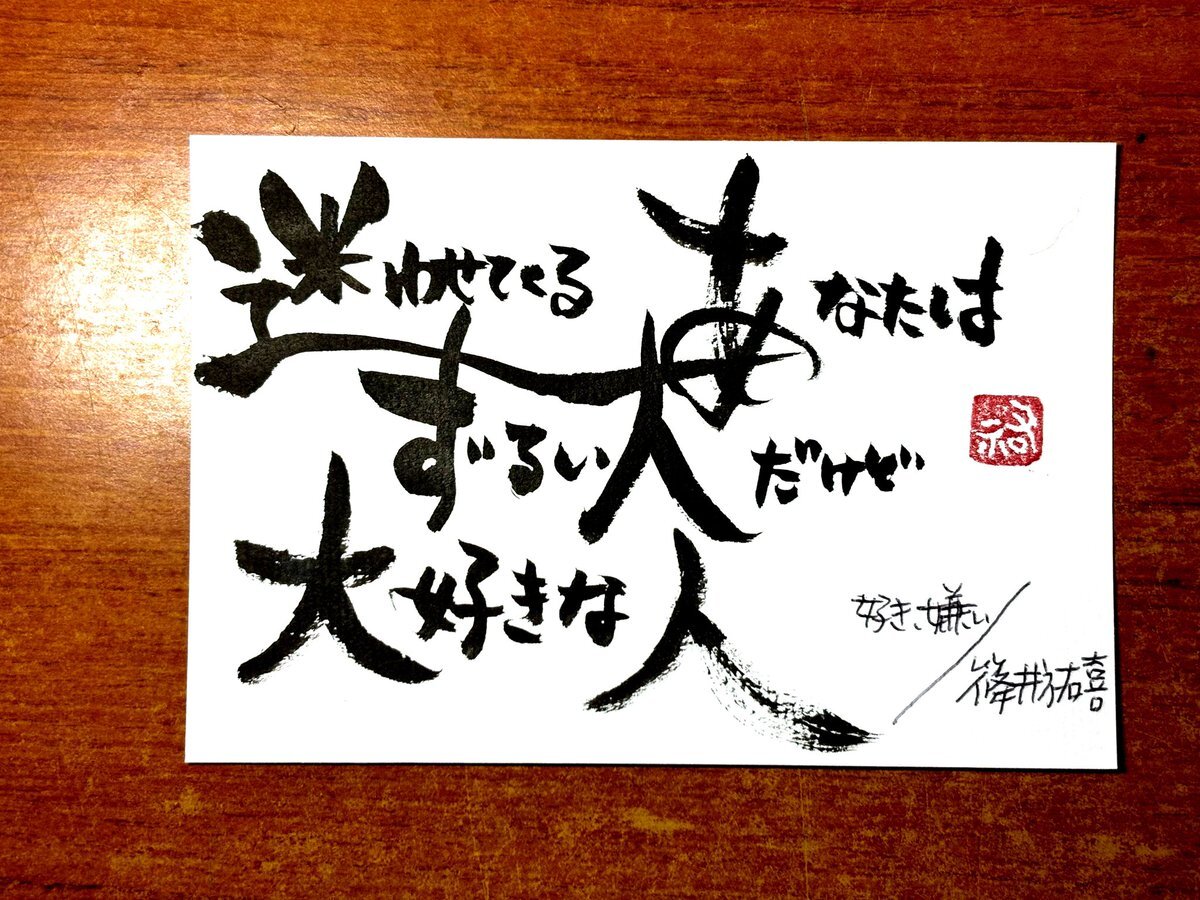 迷わせてくる あなたは
ずるい人だけど
大好きな人
祐
好き、嫌い／
篠井祐喜